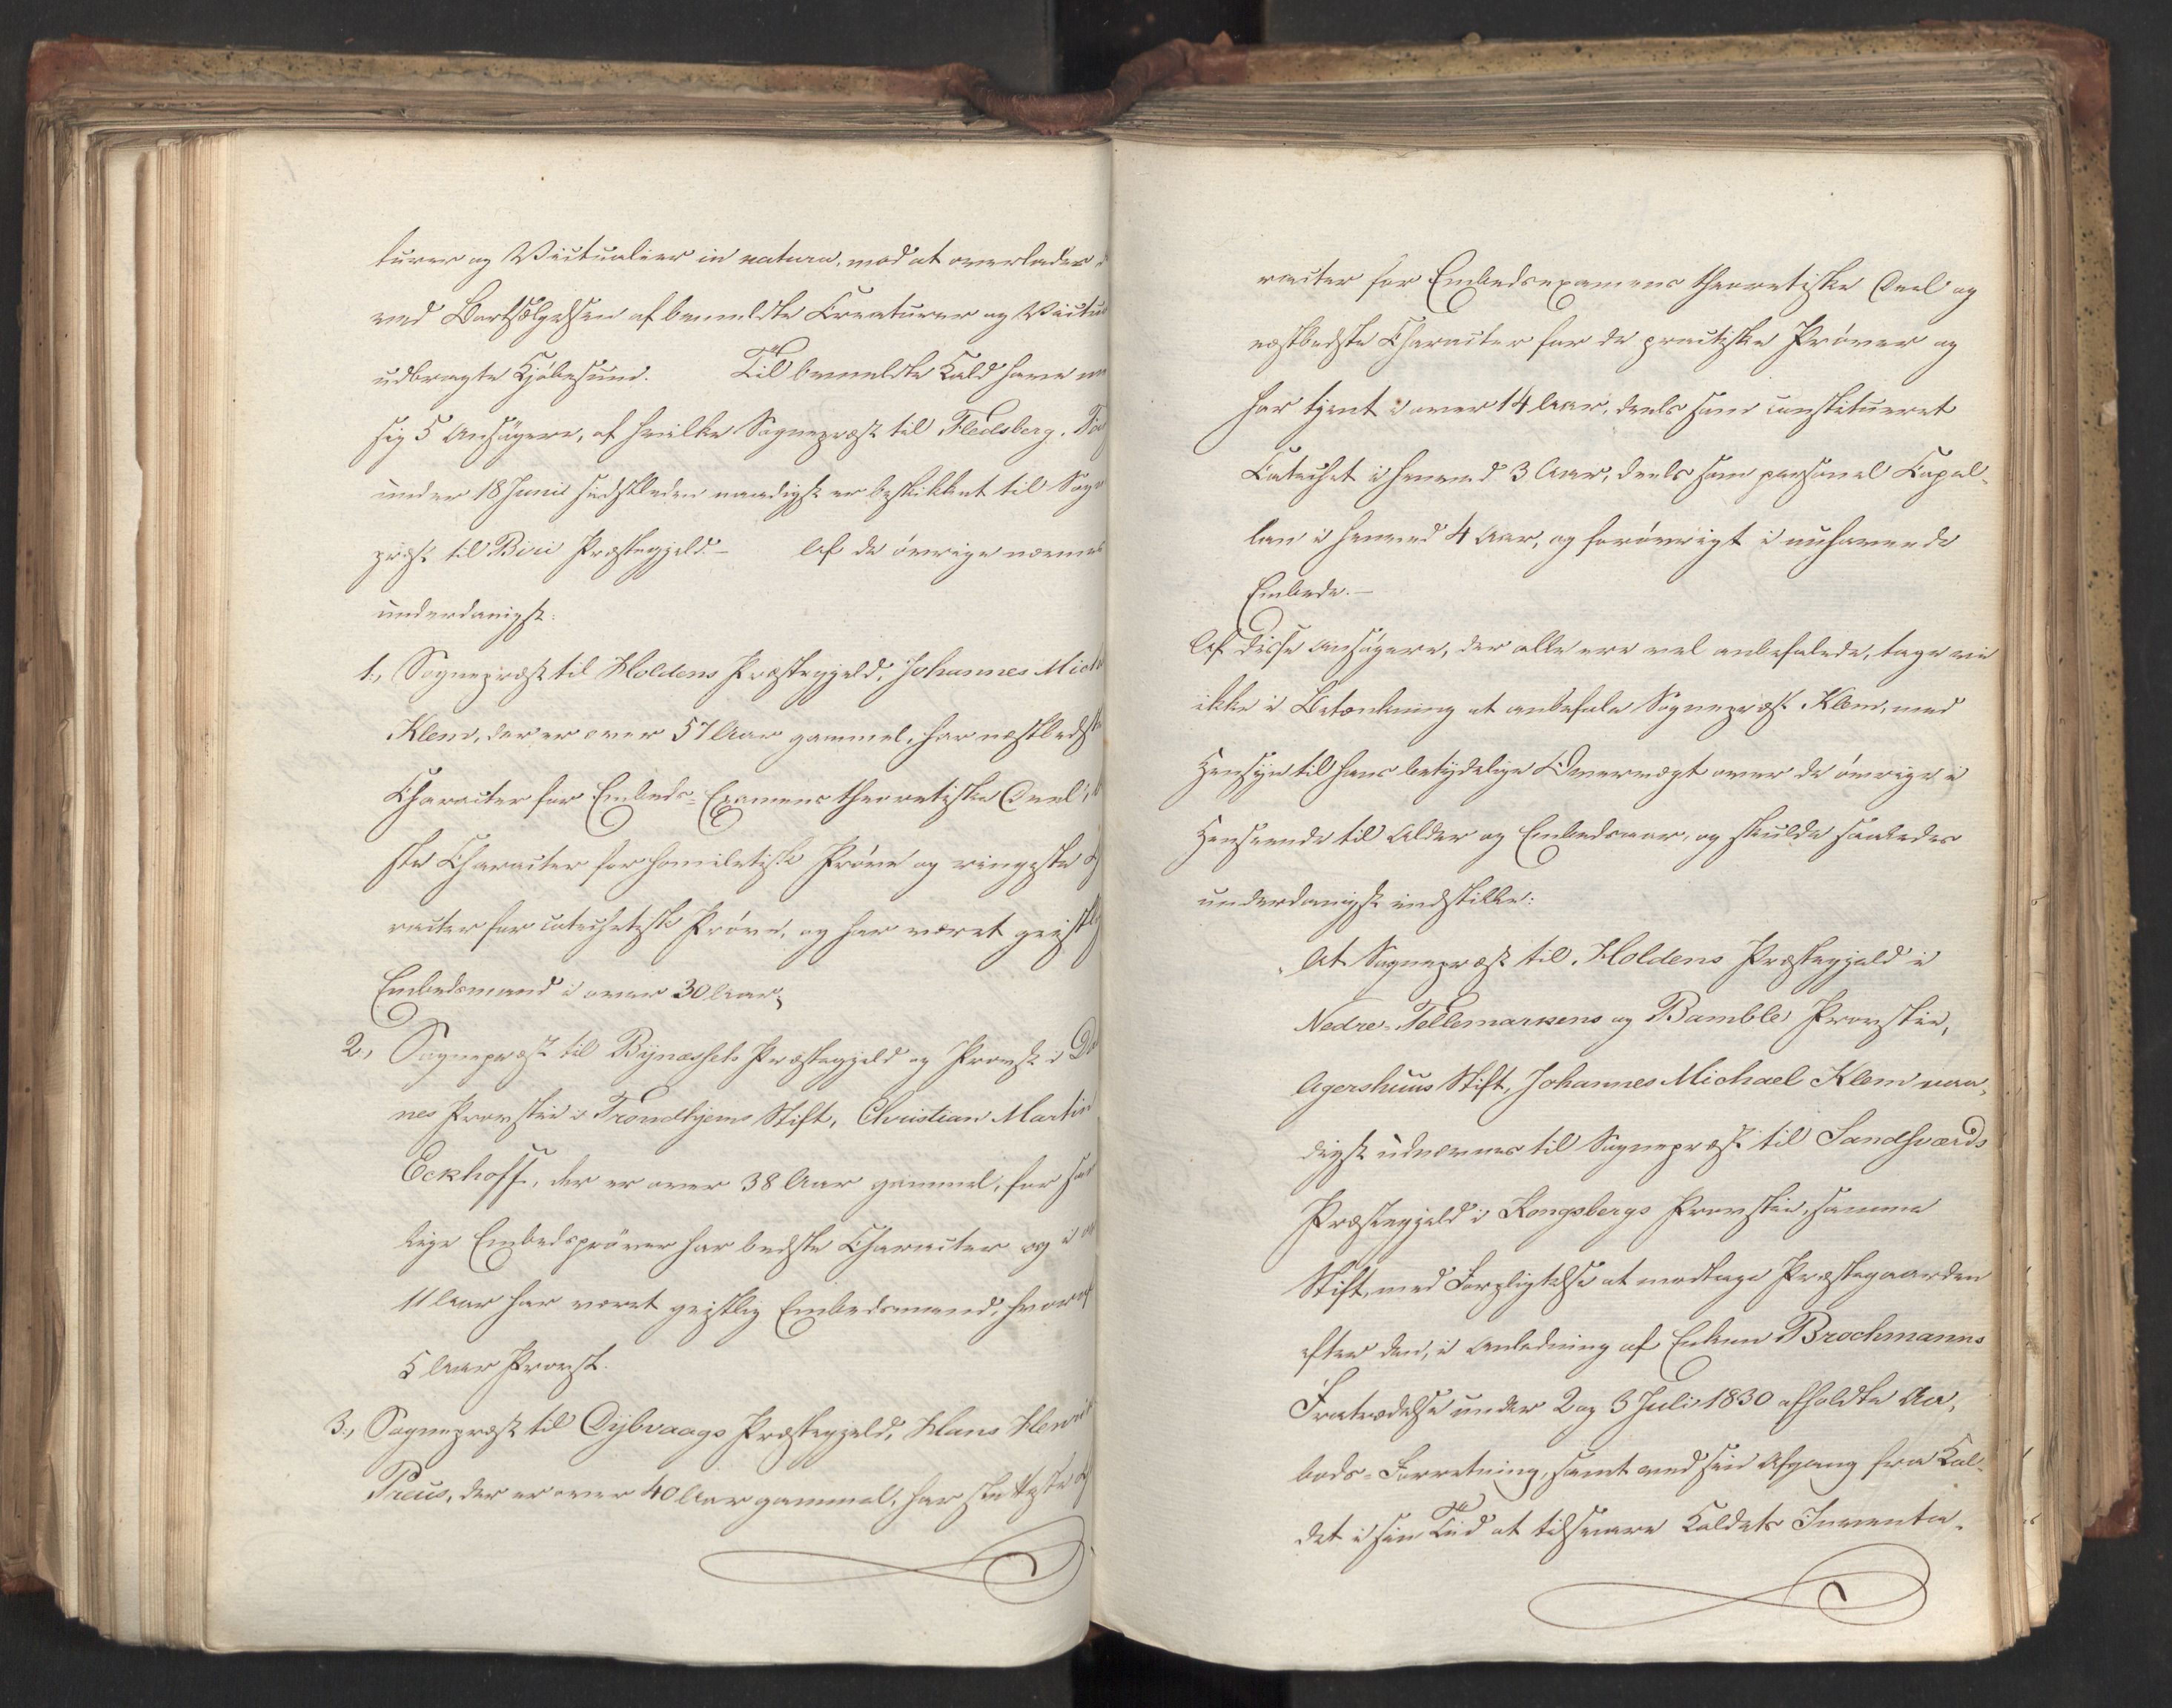 turer og Victualier in natura, mod at overlades
ved Bortsælgelsen af bemeldte Creaturer og Victu
udbragte Kjøbesum. Til bemeldte Kald have
sig 5 Ansøgere, af hvilke Sognepræst til Fledsberg,
under 18 Junii sidstleden naadigst er beskikket til Sogne
præst til Biri Præstegjeld.– Af de øvrige nævnes
underdanigst:
1., Sognepræst til Holdens Præstegjeld, Johannes Mich
Klem, der er over 57 Aar gammel, har næstbedste
Character for Embeds-Examens theoretiske Deel,
ste Character for homiletisk Prøve og ringeste
racter for catechetisk Prøve, og har været geistlig
Embedsmand i over 30 Aar,
2., Sognepræst til Bynæssets Præstegjeld og Provst i Da
nes Provstie i Trondhjems Stift, Christian Martin
Eckhoff, der er over 38 Aar gammel, for
lige Embedsprøver har bedste Character og i
11 Aar har været geistlig Embedsmand, hvoraf
5 Aar Provst.
3., Sognepræst til Dybvaags Præstegjeld, Hans Henrik
Preus, der er over 40 Aar gammel, har
racter for Embedsexamens theoretiske Deel og
næstbedste Character for de practiske Prøver og
har tjent i over 14 Aar, deels som constitueret
Catechet i henved 3 Aar, deels som personel Capel-
lan i henved 4 Aar, og forøvrigt i nuhavende
Embede.–
Af disse Ansøgere, der alle ere vel anbefalede, tage vi
ikke i Betænkning at anbefale Sognepræst Klem, med
Hensyn til hans betydelige Overvægt over de øvrige i
Henseende til Alder og Embedsaar, og skulde saaledes
underdanigst indstille:
At Sognepræst til Holdens Præstegjeld i
Nedre-Tellemarkens og Bamble Provstie,
Agershuus Stift, Johannes Michael Klem naa-
digst udnævnes til Sognepræst til Sandsværds
Præstegjeld i Kongsbergs Provstie, samme
Stift, med Forpligtelse at modtage Præstegaarden
efter den, i Anledning af Enken Brochmanns
Fratrædelse under 2 og 3 Juli 1830 afholdte Aa-
bods-Forretning, samt ved sin Afgang fra Kal-
det i sin Tid at tilsvare Kaldets Inventa-